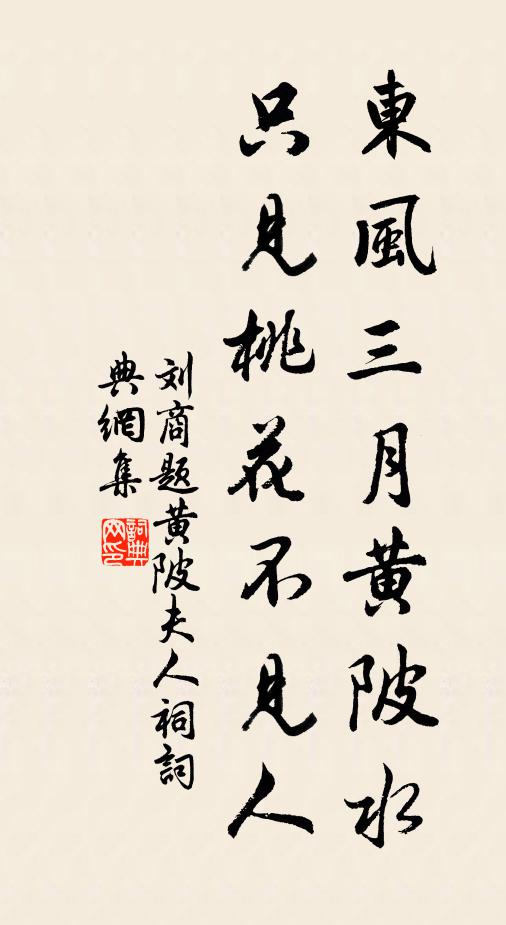 東風三月黄陂水
只見桃花不見人
刘商題黄陂夫人祠詞
典網集
詞典
网印